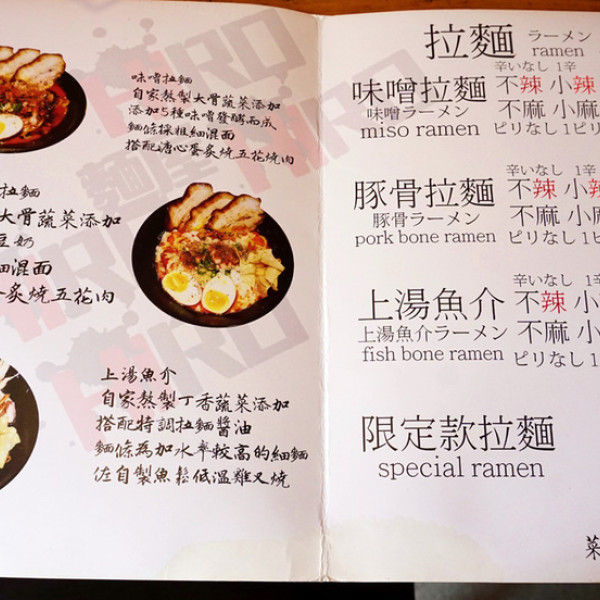 味噌拉麵
自家熬製大骨蔬菜添加
添加5種味噌發酵而成
麵條採粗細混面
搭配溏心蛋炙燒五花燒肉
拉麵
大骨蔬菜添加
豆奶
細混面
炙燒五花肉
上湯魚介
自家熬製丁香蔬菜添加
搭配特調拉麵醬油
麵條為加水率較高的細麵
佐自製魚鬆低溫雞叉燒
HIRO
麵屋
HIRO
HIRO
HIRO
拉麵 ラーメン
ramen
辛いなし 1辛
味噌拉麵 不辣 小辣
味噌ラーメン 不麻 小麻
miso ramen ピリなし 1ピリ
辛いなし 1辛
豚骨拉麵 不辣 小辣
豚骨ラーメン 不麻 小麻
pork bone ramen ピリなし 1ピ
辛いなし 1
上湯魚介 不辣 小
上湯魚介ラーメン 不麻 小
fish bone ramen ピリなし 1
限定款拉麵
special ramen
菜